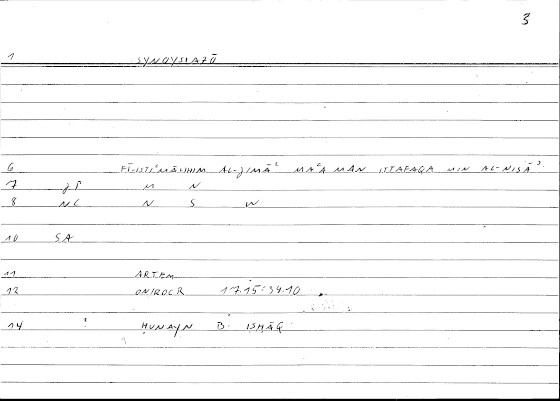 3
1 SYNOYSIAZŌ
6 FĪ-ISTIʿMĀLIHIM AL-ǦIMĀʿ MAʿA MAN ITTAFAQA MIN AL-NISĀʾ
7 ǧ M N
8 NL N S W
10 SA
11 ARTEM
12 ONIROCR 17.15:34.10
14 : ḤUNAYN B. ISḤĀQ